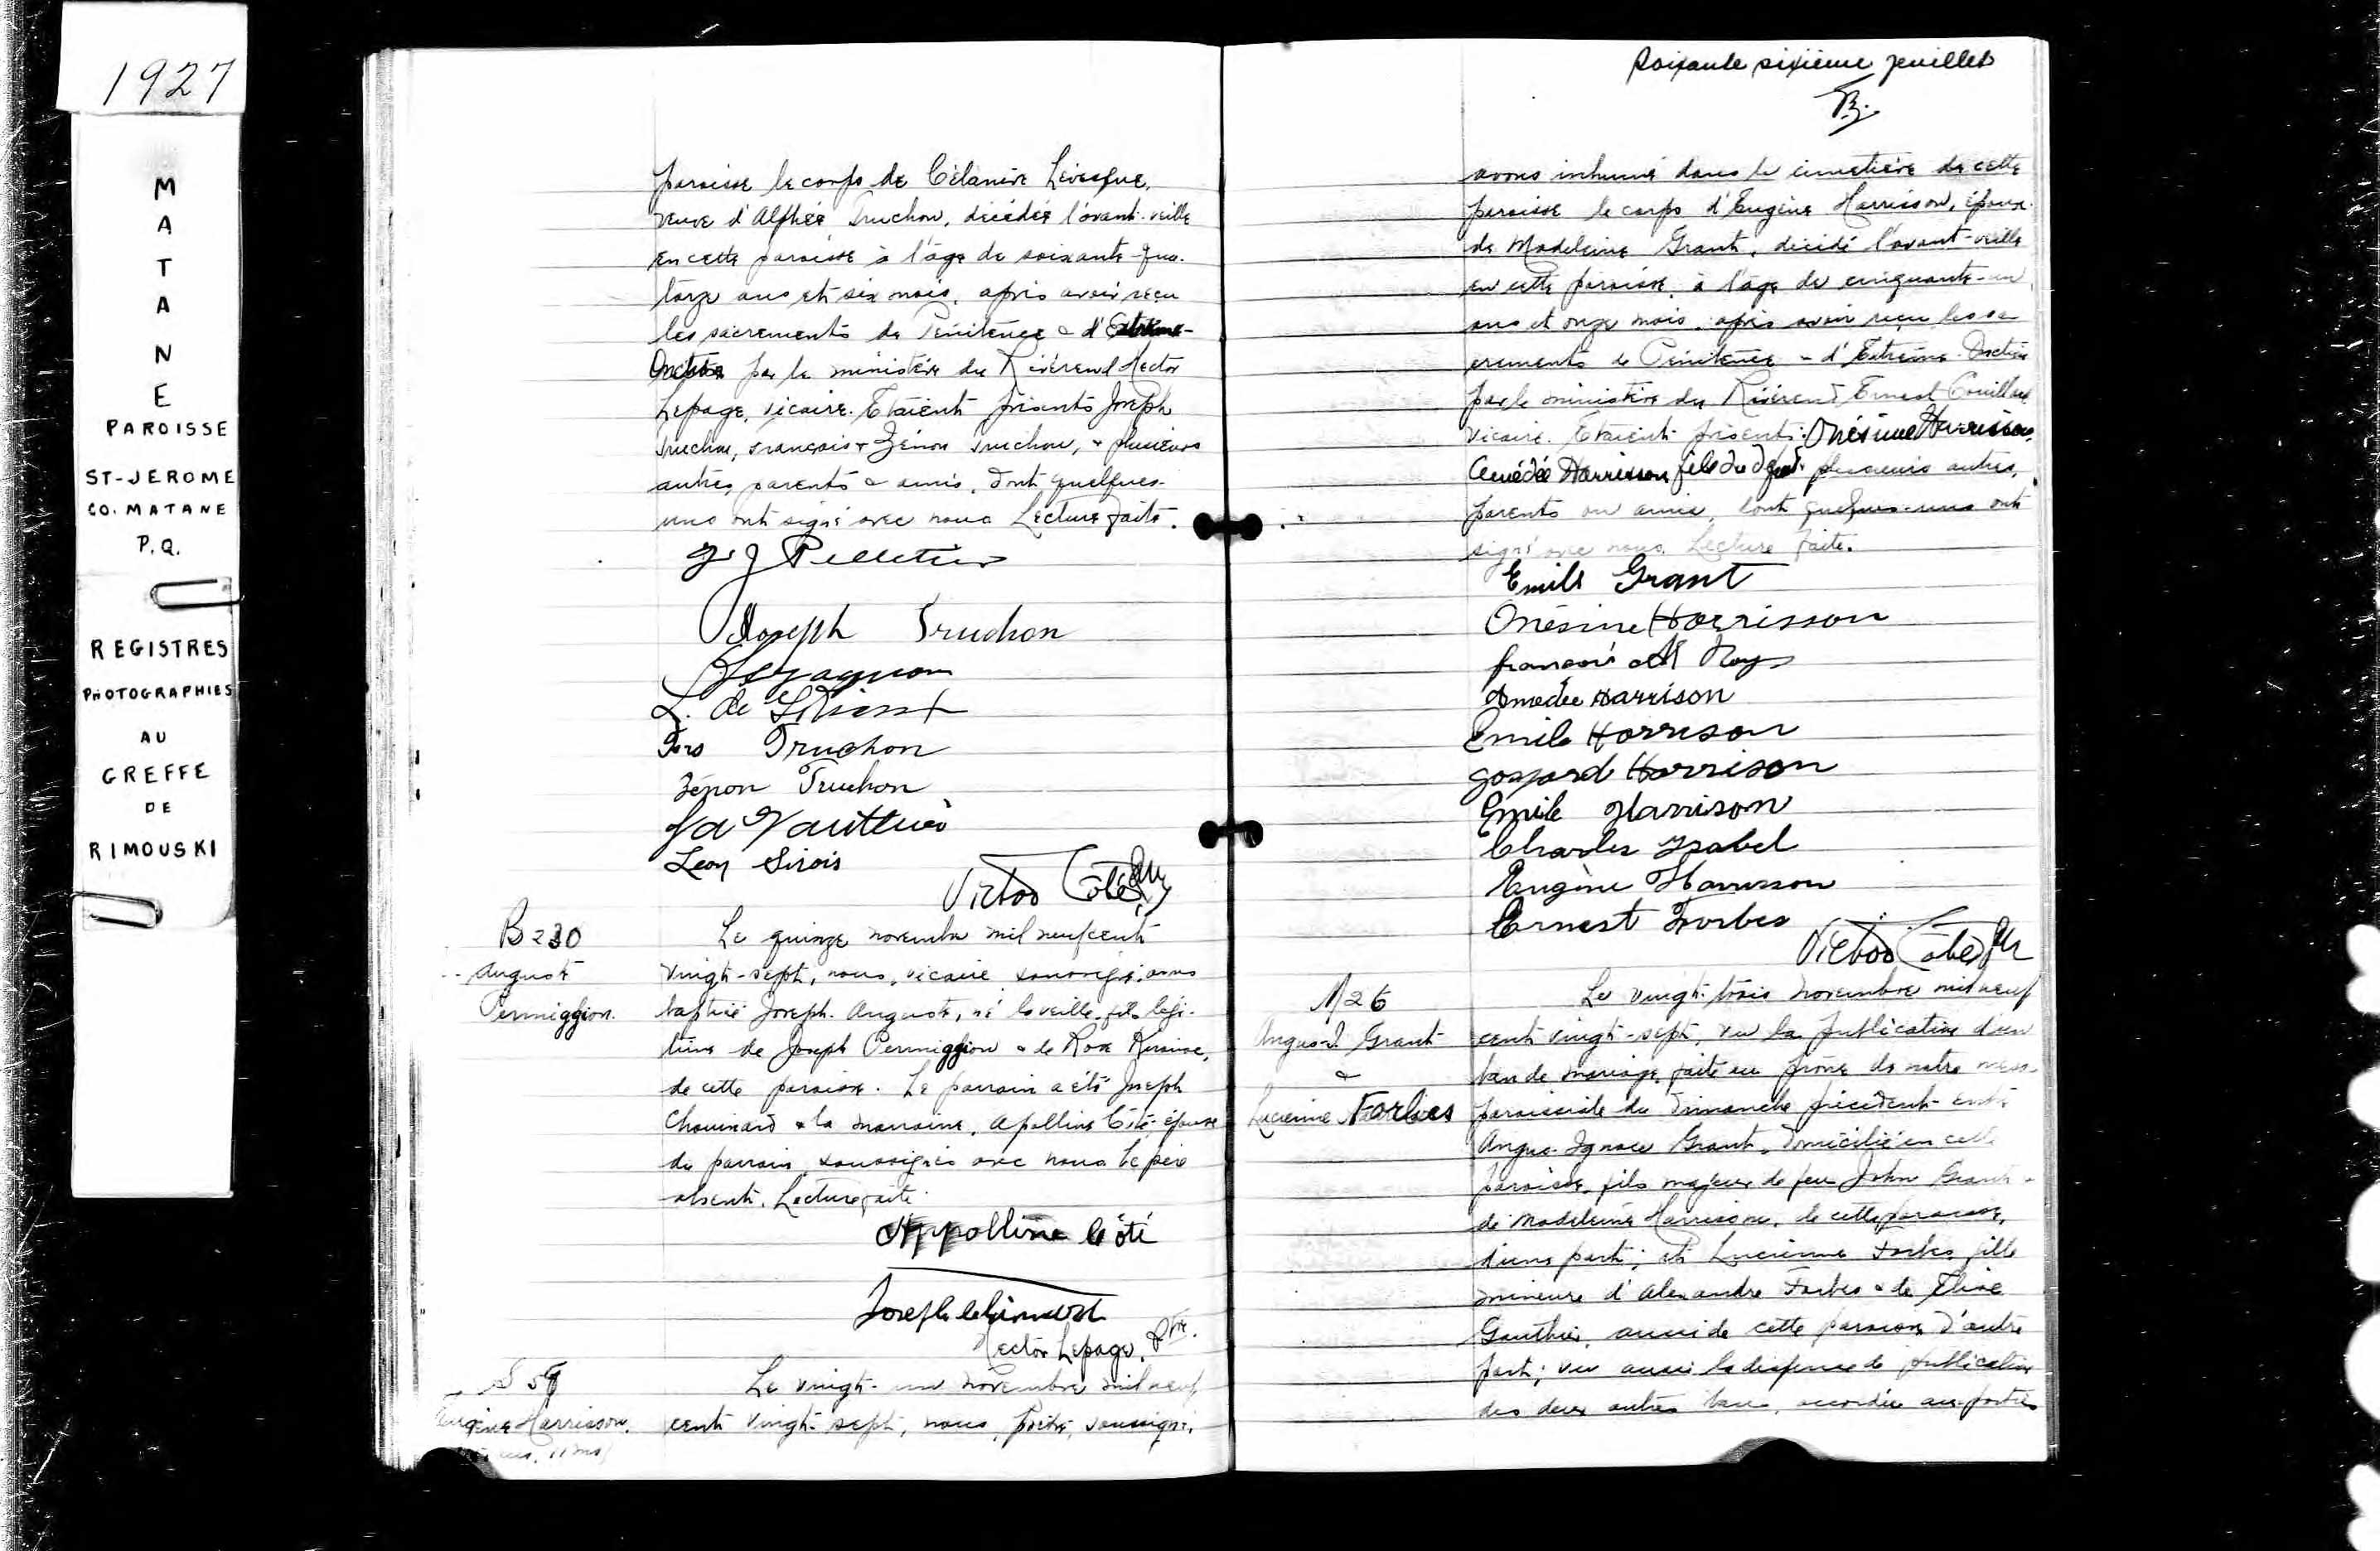 1927
M
A
T
A
N
E
PAROISSE
ST-JEROME
CO. MATANE
P.Q.
REGISTRES
PHOTOGRAPHIES
AU
GREFFE
DE
RIMOUSKI
paroisse le corps de Célanire Lévesque,
veuve d'Alphée Truchon, décédée l'avant-veille
en cette paroisse à l'âge de soixante-qua-
torze ans et six mois, après avoir reçu
les sacrements de Pénitence & d'Extrême-
Onction par le ministère du Révérend Hector
Lepage, vicaire. Etaient présents Joseph
Truchon, François & Zénon Truchon, & plusieurs
autres, parents & amis, dont quelques-
uns ont signé avec nous. Lecture faite.
J Pelletier
Joseph Truchon
L. de
Frs Truchon
Zénon Truchon
Leon Sirois
Victor Côté Ptr
B 230
Auguste
Permiggion.
Le quinze novembre mil neuf cent
vingt-sept, nous, vicaire soussigné, avons
baptisé Joseph-Auguste, né la veille, fils légi-
time de Joseph Permiggion & de Rose
de cette paroisse. Le parrain a été Joseph
Chouinard & la marraine, Apolline Côté, épouse
du parrain, soussignés avec nous. Le père
absent. Lecture faite.
Appolline Côté
Joseph Chouinard
Hector Lepage, Ptre.
S 59
Eugène Harrisson.
11 ms)
Le vingt-un novembre mil neuf
cent vingt-sept, nous, prêtre, soussigné,
Soixante sixième feuillet
avons inhumé dans le cimetière de cette
paroisse le corps d'Eugène Harrisson, époux
de Madeleine Grant, décédé l'avant-veille
en cette paroisse, à l'âge de cinquante-un
ans et onze mois, après avoir reçu les sa-
crements de Pénitence & d'Extrême-Onction
par le ministère du Révérend Ernest Couillard
vicaire. Etaient présents: Onésime Harrisson,
Amédée Harrisson fils du défunt plusieurs autres,
parents ou amis, dont quelques-uns ont
signé avec nous. Lecture faite.
Emile Grant
Onésime Harrisson
françois Roy
Amedée Harrison
Emile Harrison
Gozzard Harrison
Emile Harrison
Charles Isabel
Eugène Harrisson
Ernest Forbes
Victor Côté Ptr
M 26
Angus-I. Grant
&
Lucienne Forbes
Le vingt-trois novembre mil neuf
cent vingt-sept, vu la publication d'un
ban de mariage, faite au prône de notre messe
paroissiale du dimanche précédent entre
Angus-Ignace Grant, domicilié en cette
paroisse, fils majeur de feu John Grant &
de Madeleine Harrisson, de cette paroisse,
d'une part; et Lucienne Forbes, fille
mineure d'Alexandre Forbes & de Elise
Gauthier, aussi de cette paroisse d'autre
part; vu aussi la dispense de publication
des deux autres bans, accordée aux parties